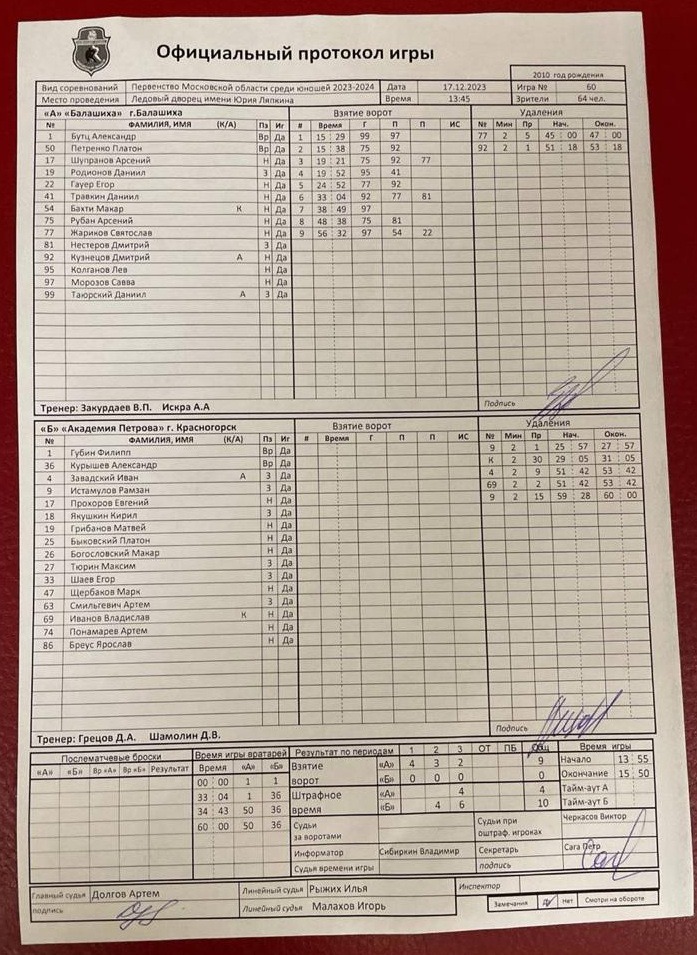 Официальный протокол игры
2010 год рождения
Вид соревнований Первенство Московской области среди юношей 2023-2024 Дата 17.12.2023 Игра № 60
Место проведения Ледовый дворец имени Юрия Ляпкина Время 13:45 Зрители 64 чел.
«А» «Балашиха» г.Балашиха Взятие ворот Удаления
№ ФАМИЛИЯ, ИМЯ (К/А) Пз Иг # Время Г П П ИС № Мин Пр Нач. Окон.
1 Бутц Александр Вр Да 1 15 : 29 99 97 77 2 5 45 : 00 47 : 00
50 Петренко Платон Вр Да 2 15 : 38 75 92 92 2 1 51 : 18 53 : 18
17 Шупранов Арсений Н Да 3 19 : 21 75 92 77
19 Родионов Даниил З Да 4 19 : 52 95 41
22 Гауер Егор Н Да 5 24 : 52 77 92
41 Травкин Даниил Н Да 6 33 : 04 92 77 81
54 Бахти Макар К Н Да 7 38 : 49 97
75 Рубан Арсений Н Да 8 48 : 38 75 81
77 Жариков Святослав Н Да 9 56 : 32 97 54 22
81 Нестеров Дмитрий З Да
92 Кузнецов Дмитрий А Н Да
95 Колганов Лев Н Да
97 Морозов Савва Н Да
99 Таюрский Даниил А З Да
Тренер: Закурдаев В.П. Искра А.А Подпись
«Б» «Академия Петрова» г. Красногорск Взятие ворот Удаления
№ ФАМИЛИЯ, ИМЯ (К/А) Пз Иг # Время Г П П ИС № Мин Пр Нач. Окон.
1 Губин Филипп Вр Да 9 2 1 25 : 57 27 : 57
36 Курышев Александр Вр Да К 2 30 29 : 05 31 : 05
4 Завадский Иван А З Да 4 2 9 51 : 42 53 : 42
9 Истамулов Рамзан З Да 69 2 2 51 : 42 53 : 42
17 Прохоров Евгений Н Да 9 2 15 59 : 28 60 : 00
18 Якушкин Кирил З Да
19 Грибанов Матвей Н Да
25 Быковский Платон Н Да
26 Богословский Макар Н Да
27 Тюрин Максим З Да
33 Шаев Егор З Да
47 Щербаков Марк Н Да
63 Смильгевич Артем З Да
69 Иванов Владислав К Н Да
74 Понамарев Артем Н Да
86 Бреус Ярослав Н Да
Тренер: Грецов Д.А. Шамолин Д.В. Подпись
Послематчевые броски Время игры вратарей Результат по периодам 1 2 3 ОТ ПБ Общ Время игры
«А» «Б» Вр «А» Вр «Б» Результат Время «А» «Б» Взятие ворот «А» 4 3 2 9 Начало 13 55
00 : 00 1 1 «Б» 0 0 0 0 Окончание 15 50
33 : 04 1 36 Штрафное время «А» 4 4 Тайм-аут А
34 : 43 50 36 «Б» 4 6 10 Тайм-аут Б
60 : 00 50 36 Судьи за воротами Судьи при оштраф. игроках Черкасов Виктор
Информатор Сибиркин Владимир Секретарь Сага Петр
Судья времени игры подпись
Главный судья Долгов Артем Линейный судья Рыжих Илья Инспектор
подпись Линейный судья Малахов Игорь Замечания Да Нет Смотри на обороте